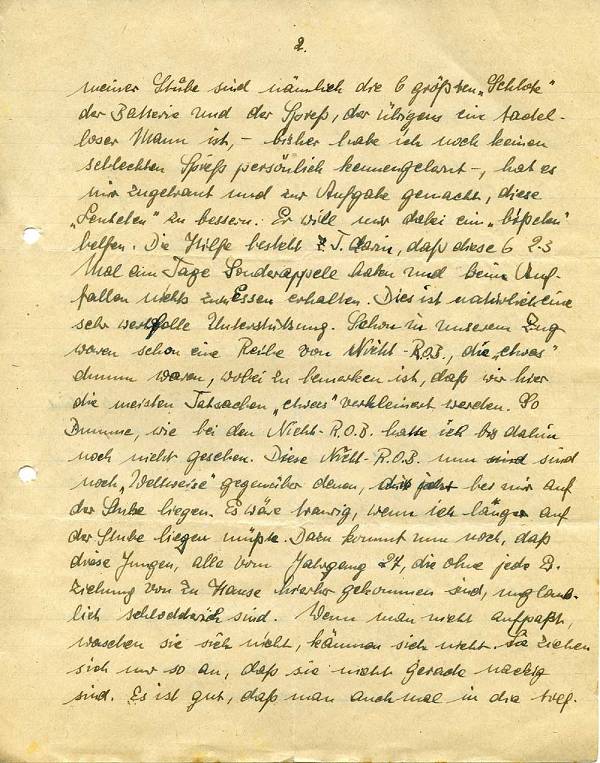 2.
meiner Stube sind nämlich die 6 größten „Schlote"
der Batterie und der Spieß, der übrigens ein tadel-
loser Mann ist, – bisher habe ich noch keinen
schlechten Spieß persönlich kennengelernt –, hat es
mir zugetraut und zur Aufgabe gemacht, diese
zu bessern. Er will mir dabei ein „bißchen"
helfen. Die Hilfe besteht z. T. darin, daß diese 6 2-3
Mal am Tage Sonderappele haben und beim Auf-
fallen nichts zum Essen erhalten. Dies ist natürlich eine
sehr wertvolle Unterstützung. Schon in unserem Zug
waren schon eine Reihe von Nicht-R.O.B., die „etwas"
dumm waren, wobei zu bemerken ist, daß wir hier
die meisten Tatsachen „etwas" verkleinert werden. So
Dumme, wie bei den Nicht-R.O.B. hatte ich bis dahin
noch nicht gesehen. Diese Nicht-R.O.B. nun sind sind
noch „Weltweise" gegenüber denen, die jetzt bei mir auf
der Stube liegen. Es wäre traurig, wenn ich länger auf
der Stube liegen müßte. Dazu kommt nun noch, daß
diese Jungen, alle vom Jahrgang 27, die ohne jede Er-
ziehung von zu Hause hierher gekommen sind, unglaub-
lich schlodderich sind. Wenn man nicht aufpaßt,
waschen sie sich nicht, kämmen sich nicht. Sie ziehen
sich nur so an, daß sie nicht gerade nackig
sind. Es ist gut, daß man auch mal in die